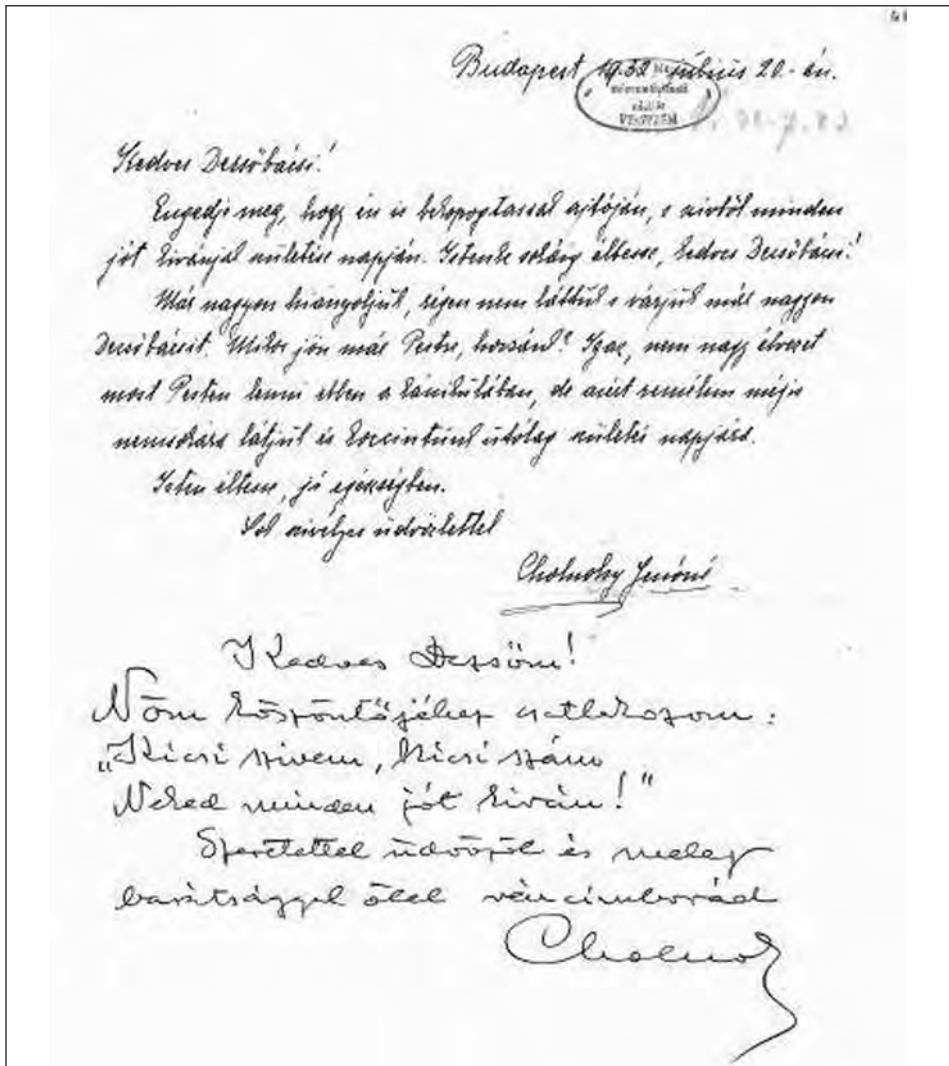 Budapest 1932 július 20.-án.
VESZPRÉM
Kedves Dezsőbácsi!
Engedje meg, hogy én is bekopogtassak ajtóján, s szivből minden
jót kivánjak születése napján. Istenke sokáig éltesse, kedves Dezsőbácsi!
Már nagyon hiányoljuk, régen nem láttuk s várjuk már nagyon
Dezsőbácsit. Mikor jön már Pestre, hozzánk? Igaz, nem nagy élvezet
most Pesten lenni ebben a kánikulában, de azért remélem mégis
nemsokára látjuk és koccintunk utólag születés napjára.
Isten éltesse, jó egészségben.
Sok szivélyes üdvözlettel
Cholnoky Jenőné
Kedves Dezsőm!
Nőm köszöntőjéhez csatlakozom:
„Kicsi szivem, kicsi szám
Neked minden jót kiván!"
Szeretettel üdvözöl és meleg
barátsággal ölel vén cimborád
Cholnoky